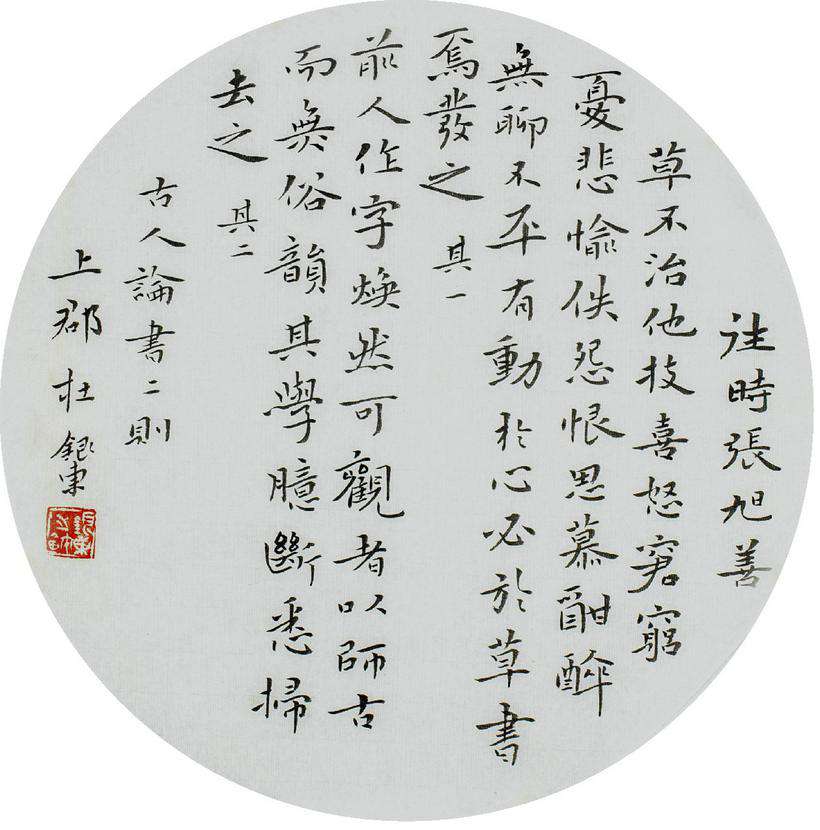 往時張旭善
草不治他技喜怒窘窮
憂悲愉佚怨恨思慕酣醉
無聊不平有動於心必於草書
焉發之 其一
前人作字煥然可觀者以師古
而無俗韻其學臆斷悉掃
去之 其二
古人論書二則
上郡杜銀東